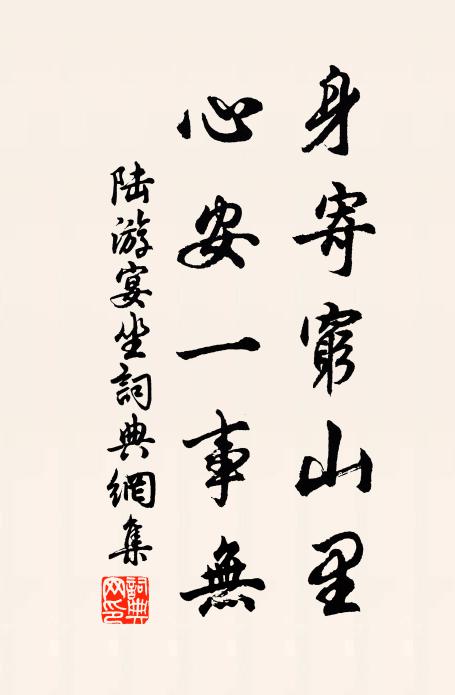 身寄窮山里
心安一事無
陆游宴坐詞典網集
詞典网印